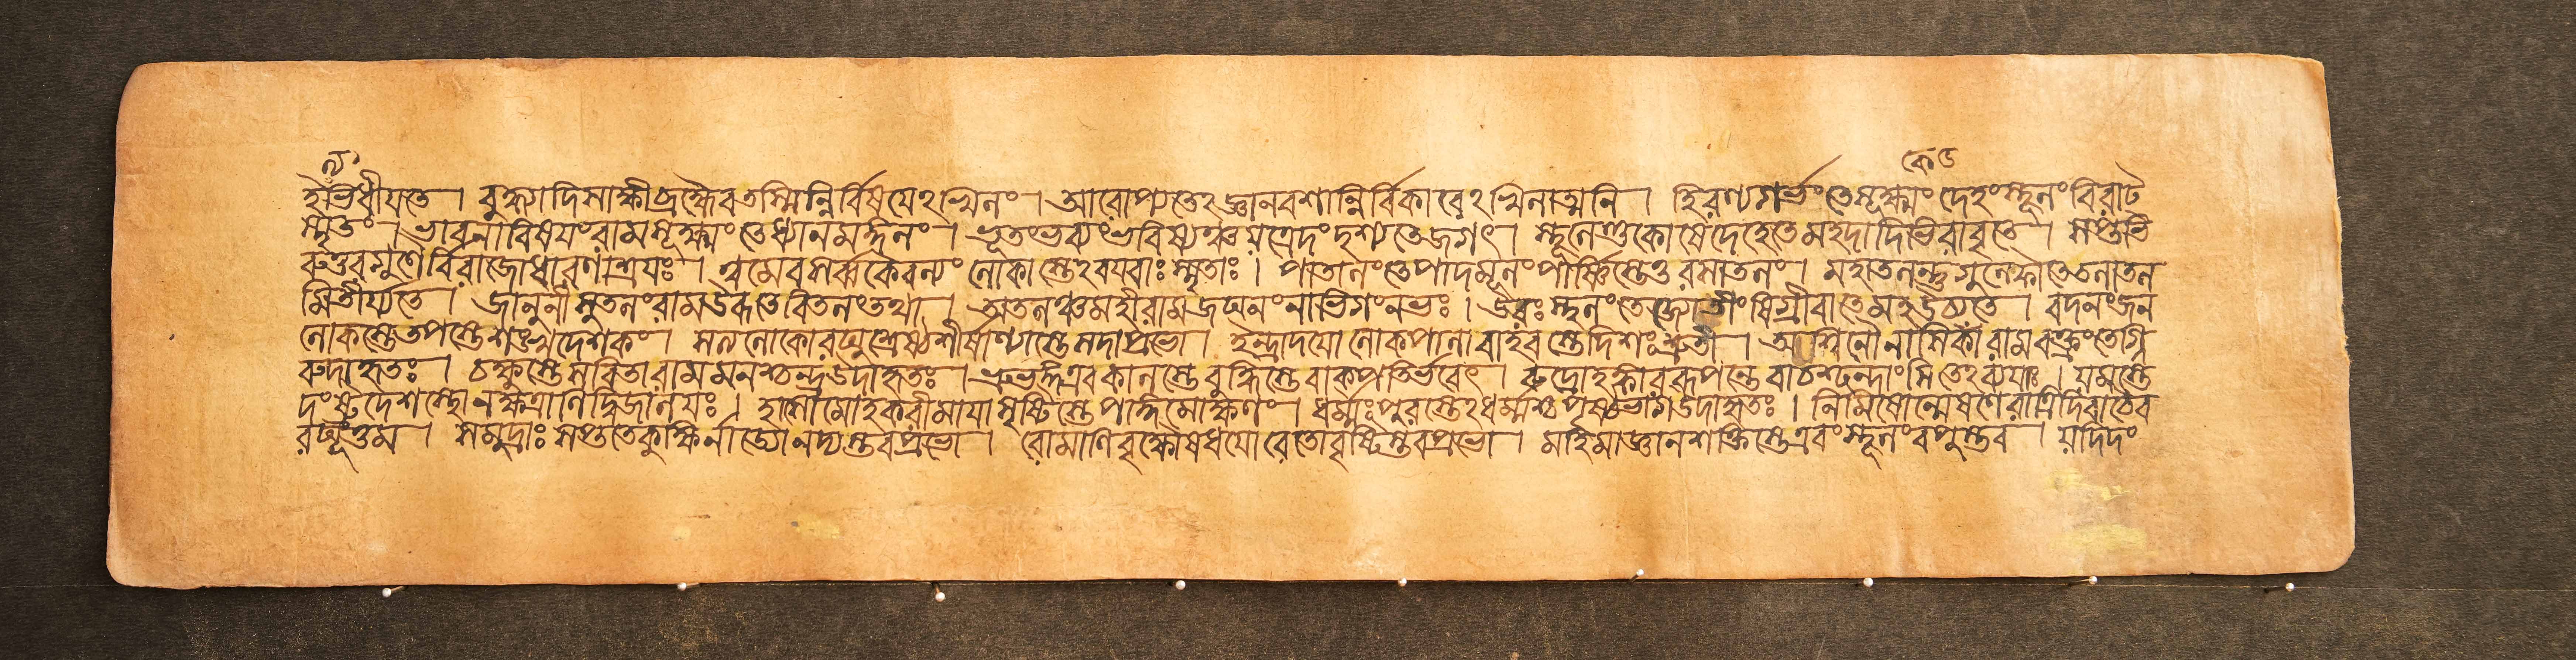 ত্যভিধীয়তে । বুদ্ধ্যাদিসাক্ষীব্রহ্মৈবতস্মিন্নির্বিষয়েঽখিলং । আরোপ্যতেঽজ্ঞানবশান্নির্বিকারেঽখিলাত্মনি । হিরণ্যগর্ভংতেসূক্ষ্মংদেহংস্থূলংবিরাট
স্মৃতং । ভাবনাবিষয়ংরামসূক্ষ্মংতেধ্যানমঙ্গলং । ভূতংভব্যংভবিষ্যঞ্চযত্রেদংদৃশ্যতেজগৎ । স্থূলেণ্ডকোষেদেহেতেমহদাদিভিরাবৃতে । সপ্তভি
রুত্তরগুণৈর্বিরাজোধারণাশ্রয়ঃ । ত্বমেবসর্ব্বকৈবল্যং লোকাস্তেঽবয়বাঃস্মৃতাঃ । পাতালংতেপাদমূলংপার্ষ্ণিস্তেতুরসাতলং । মহাতলন্তুগুল্ফোতেতলাতল
মিতীর্য্যতে । জানুনীসুতলংরামঊরূতেবিতলংতথা । অতলঞ্চমহীরামজঘনংনাভিগংনভঃ । উরঃস্থলংতেজ্যোতীংষিগ্রীবাতেমহউচ্যতে । বদনংজন
লোকস্তেতপস্তেশঙ্খদেশকং । সত্যলোকোরঘুশ্রেষ্ঠশীর্ষাণ্যাস্তেসদাপ্রভো । ইন্দ্রাদয়োলোকপালাবাহবস্তেদিশঃশ্রুতী । অশ্বিনৌনাসিকারামবক্ত্রংতেগ্নি
রুদাহৃতঃ । চক্ষুস্তেসবিতারামমনশ্চন্দ্রউদাহৃতঃ । ভ্রূভঙ্গএবকালস্তেবুদ্ধিস্তেবাক্পতির্ভবেৎ । রুদ্রোঽহঙ্কাররূপস্তেবাচশ্ছন্দাংসিতেঽব্যয়াঃ । যমস্তে
দংষ্ট্রদেশস্থোনক্ষত্রাণিদ্বিজালয়ঃ । হাসোমোহকরীমায়াসৃষ্টিস্তেপাঙ্গমোক্ষণং । ধর্ম্মঃপুরস্তেঽধর্ম্মশ্চপৃষ্ঠভাগউদাহৃতঃ । নিমিষোন্মেষণেরাত্রির্দিবাচৈব
রঘূত্তম । সমুদ্রাঃসপ্ততেকুক্ষির্নাড্যোনদ্যস্তবপ্রভো । রোমাণিবৃক্ষৌষধয়োরেতোবৃষ্টিস্তবপ্রভো । মহিমাজ্ঞানশক্তিস্তেএবংস্থূলংবপুস্তব । যদিদং